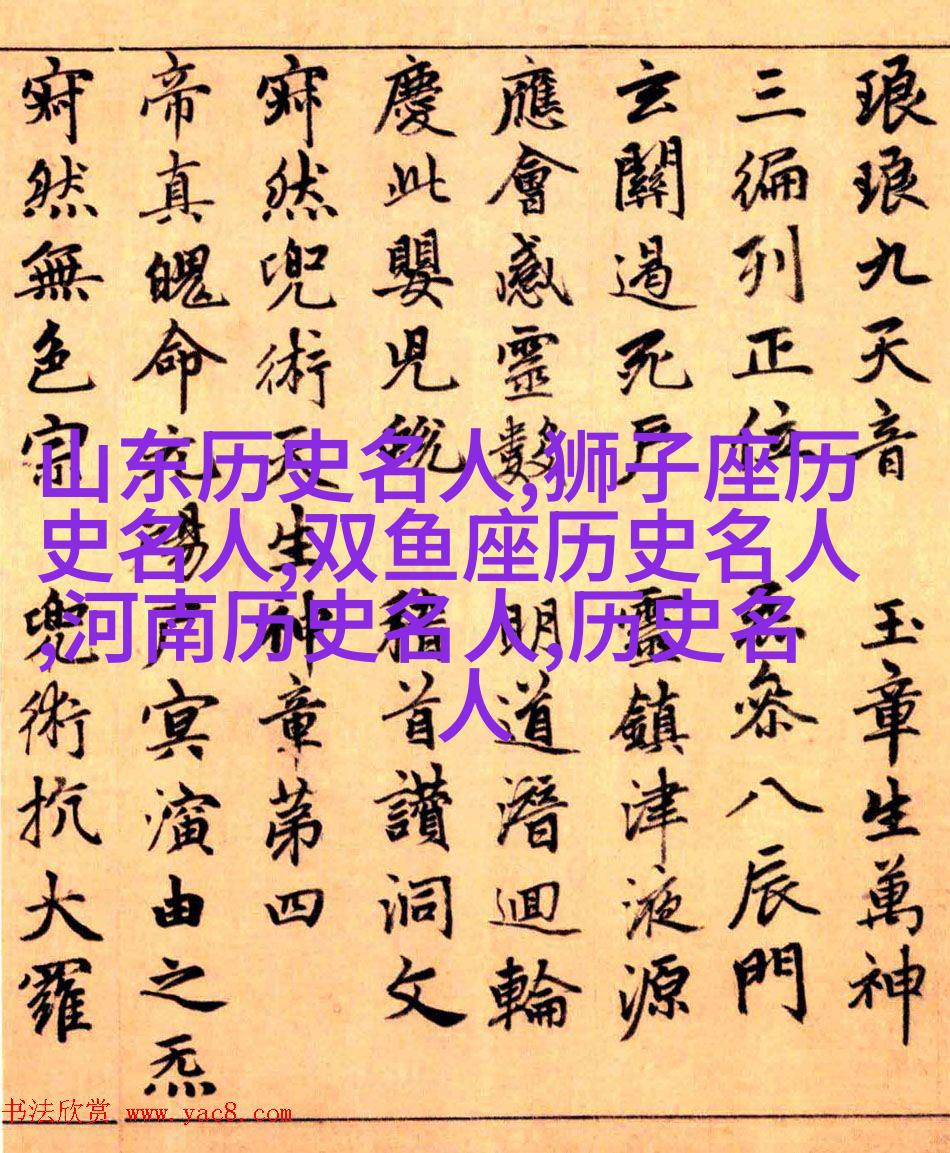 琅琅九天音 玉章生萬神
三編列正位 參八辰門
玄關過死戶 靈鎮津液源
應會感靈數 明道潛迴輪
慶此嬰兒 稽首讚洞文
寂然兜術天生神章第四
帝真 命元陽 冥演由之炁
寂然無色宗 兜術抗大羅
山东历史名人,狮子座历
史名人,双鱼座历史名人
,河南历史名人,历史名
人
书法欣赏 www.yac8.com